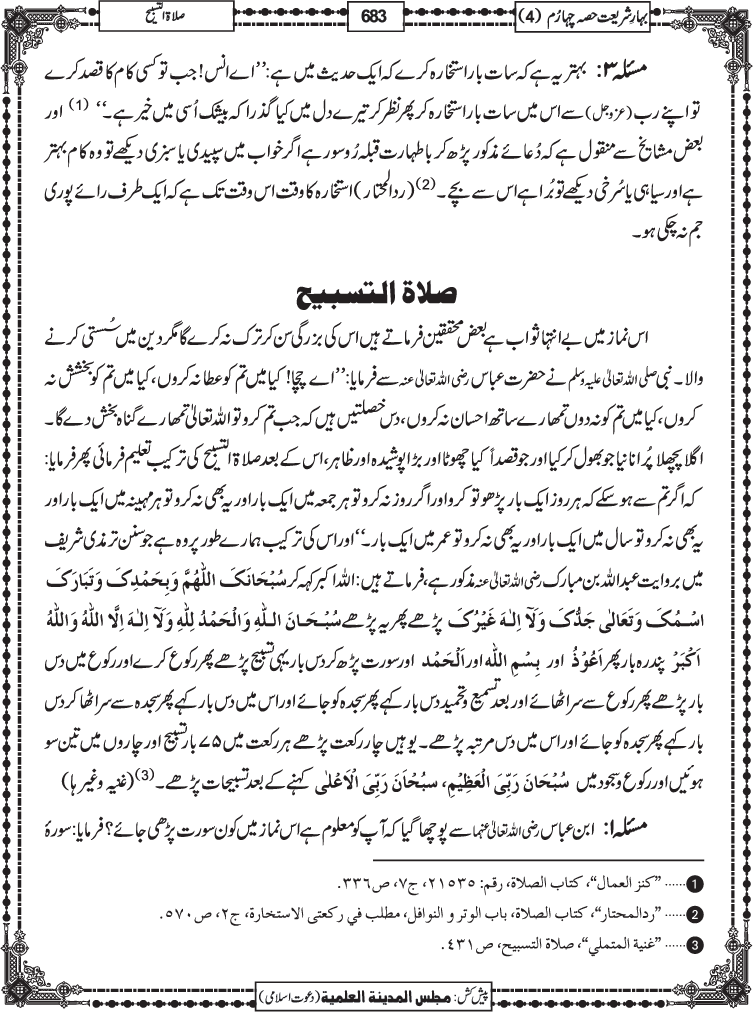 بہارشریعت حصہ چہارم (4)
683
صلاۃ التسبیح
مسئلہ ۳: بہتر یہ ہے کہ سات بار استخارہ کرے کہ ایک حدیث میں ہے: ’’اے انس! جب تو کسی کام کا قصد کرے
تو اپنے رب (عزوجل) سے اس میں سات بار استخارہ کر پھر نظر کر تیرے دل میں کیا گذرا کہ بیشک اُسی میں خیر ہے۔‘‘ (1) اور
بعض مشایخ سے منقول ہے کہ دُعائے مذکور پڑھ کر باطہارت قبلہ رُو سو رہے اگر خواب میں سپیدی یا سبزی دیکھے تو وہ کام بہتر
ہے اور سیاہی یا سُرخی دیکھے تو بُرا ہے اس سے بچے۔ (2) (ردالمحتار) استخارہ کا وقت اس وقت تک ہے کہ ایک طرف رائے پوری
جم نہ چکی ہو۔
صلاۃ التسبیح
اس نماز میں بے انتہا ثواب ہے بعض محققین فرماتے ہیں اس کی بزرگی سن کر ترک نہ کرے گا مگر دین میں سُستی کرنے
والا۔ نبی صلی اللہ تعالیٰ علیہ وسلم نے حضرت عباس رضی اللہ تعالیٰ عنہ سے فرمایا: ’’اے چچا! کیا میں تم کو عطا نہ کروں، کیا میں تم کو بخشش نہ
کروں، کیا میں تم کو نہ دوں تمھارے ساتھ احسان نہ کروں، دس خصلتیں ہیں کہ جب تم کرو تو اللہ تعالیٰ تمھارے گناہ بخش دے گا۔
اگلا پچھلا پُرانا نیا جو بھول کر کیا اور جو قصداً کیا چھوٹا اور بڑا پوشیدہ اور ظاہر، اس کے بعد صلاۃ التسبیح کی ترکیب تعلیم فرمائی پھر فرمایا:
کہ اگر تم سے ہو سکے کہ ہر روز ایک بار پڑھو تو کرو اور اگر روز نہ کرو تو ہر جمعہ میں ایک بار اور یہ بھی نہ کرو تو ہر مہینہ میں ایک بار اور
یہ بھی نہ کرو تو سال میں ایک بار اور یہ بھی نہ کرو تو عمر میں ایک بار۔‘‘ اور اس کی ترکیب ہمارے طور پر وہ ہے جو سنن ترمذی شریف
میں بروایت عبداللہ بن مبارک رضی اللہ تعالیٰ عنہ مذکور ہے، فرماتے ہیں: اللہ اکبر کہہ کر سُبْحَانَکَ اللّٰھُمَّ وَبِحَمْدِکَ وَتَبَارَکَ
اسْمُکَ وَتَعَالٰی جَدُّکَ وَلَآ اِلٰہَ غَیْرُکَ پڑھے پھر یہ پڑھے سُبْحَانَ اللّٰہِ وَالْحَمْدُ لِلّٰہِ وَلَآ اِلٰہَ اِلَّا اللّٰہُ وَاللّٰہُ
اَکْبَرُ پندرہ بار پھر اَعُوْذُ اور بِسْمِ اللہ اور اَلْحَمْد اور سورت پڑھ کر دس بار یہی تسبیح پڑھے پھر رکوع کرے اور رکوع میں دس
بار پڑھے پھر رکوع سے سر اٹھائے اور بعد تسمیع و تحمید دس بار کہے پھر سجدہ کو جائے اور اس میں دس بار کہے پھر سجدہ سے سر اٹھا کر دس
بار کہے پھر سجدہ کو جائے اور اس میں دس مرتبہ پڑھے۔ یوہیں چار رکعت پڑھے ہر رکعت میں ۷۵ بار تسبیح اور چاروں میں تین سو
ہوئیں اور رکوع و سجود میں سُبْحَانَ رَبِّیَ الْعَظِیْمِ، سبُحْاَنَ رَبِّیَ الْاَعْلٰی کہنے کے بعد تسبیحات پڑھے۔ (3) (غنیہ وغیرہا)
مسئلہ ۱: ابن عباس رضی اللہ تعالیٰ عنہما سے پوچھا گیا کہ آپ کو معلوم ہے اس نماز میں کون سورت پڑھی جائے؟ فرمایا: سورۂ
1 ...... ”کنز العمال“، کتاب الصلاۃ، رقم: ٢١٥٣٥، ج٧، ص٣٣٦.
2 ...... ”ردالمحتار“، کتاب الصلاۃ، باب الوتر و النوافل، مطلب في رکعتی الاستخارۃ، ج٢، ص٥٧٠.
3 ...... ”غنیۃ المتملي“، صلاۃ التسبیح، ص٤٣١.
پیش کش: مجلس المدینۃ العلمیۃ (دعوت اسلامی)